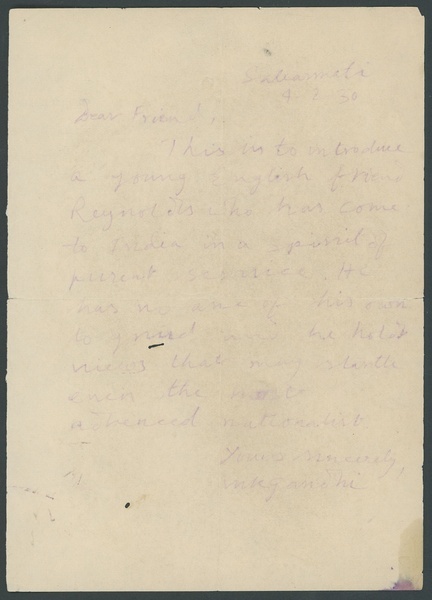 Sabarmati
4 . 2 . 30
Dear Friend,
This is to introduce
a young English friend
Reynolds who has come
to India in a spirit of
purest service. He
has no axe of his own
to grind and he holds
views that may startle
even the most
advanced nationalist
Yours sincerely,
MKGandhi